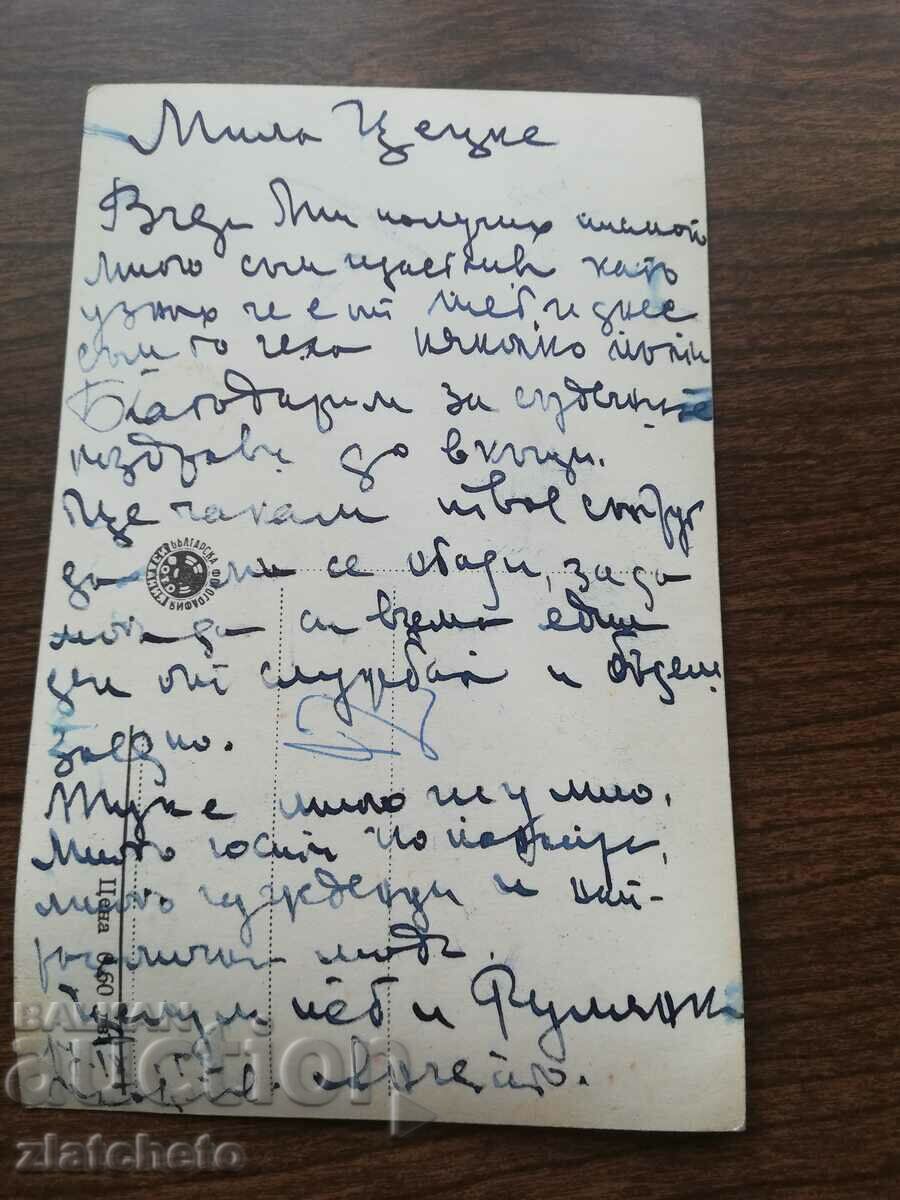 Мила Цецке
Вчера Ти получих писмото
много съм щастлив като
узнах че е от теб и днес
съм го чела няколко пъти
Благодарим за сърдечните
поздрави до вкъщи.
Ще чакам твоя съпруг
да ми се обади, за да
мога да си взема един
ден от службата и бъдем
заедно.
Тук е много шумно.
Много гости по панаира,
много чужденци и най-
различни моди.
Целувам теб и Румянка
БЪЛГАРСКА ФОТОГРАФИЯ
Цена 0.60
BALKAN
auction
zlatcheto